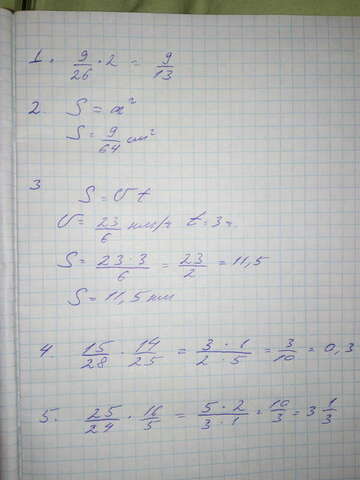 1. 9/26 · 2 = 9/13
2. S = a²
S = 9/64 cm²
3 S = Vt
V = 23/6 км/ч t = 3 ч.
S = 23·3/6 = 23/2 = 11,5
S = 11,5 км
4. 15/28 · 14/25 = 3·1/2·5 = 3/10 = 0,3
5. 25/24 · 16/5 = 5·2/3·1 = 10/3 = 3 1/3